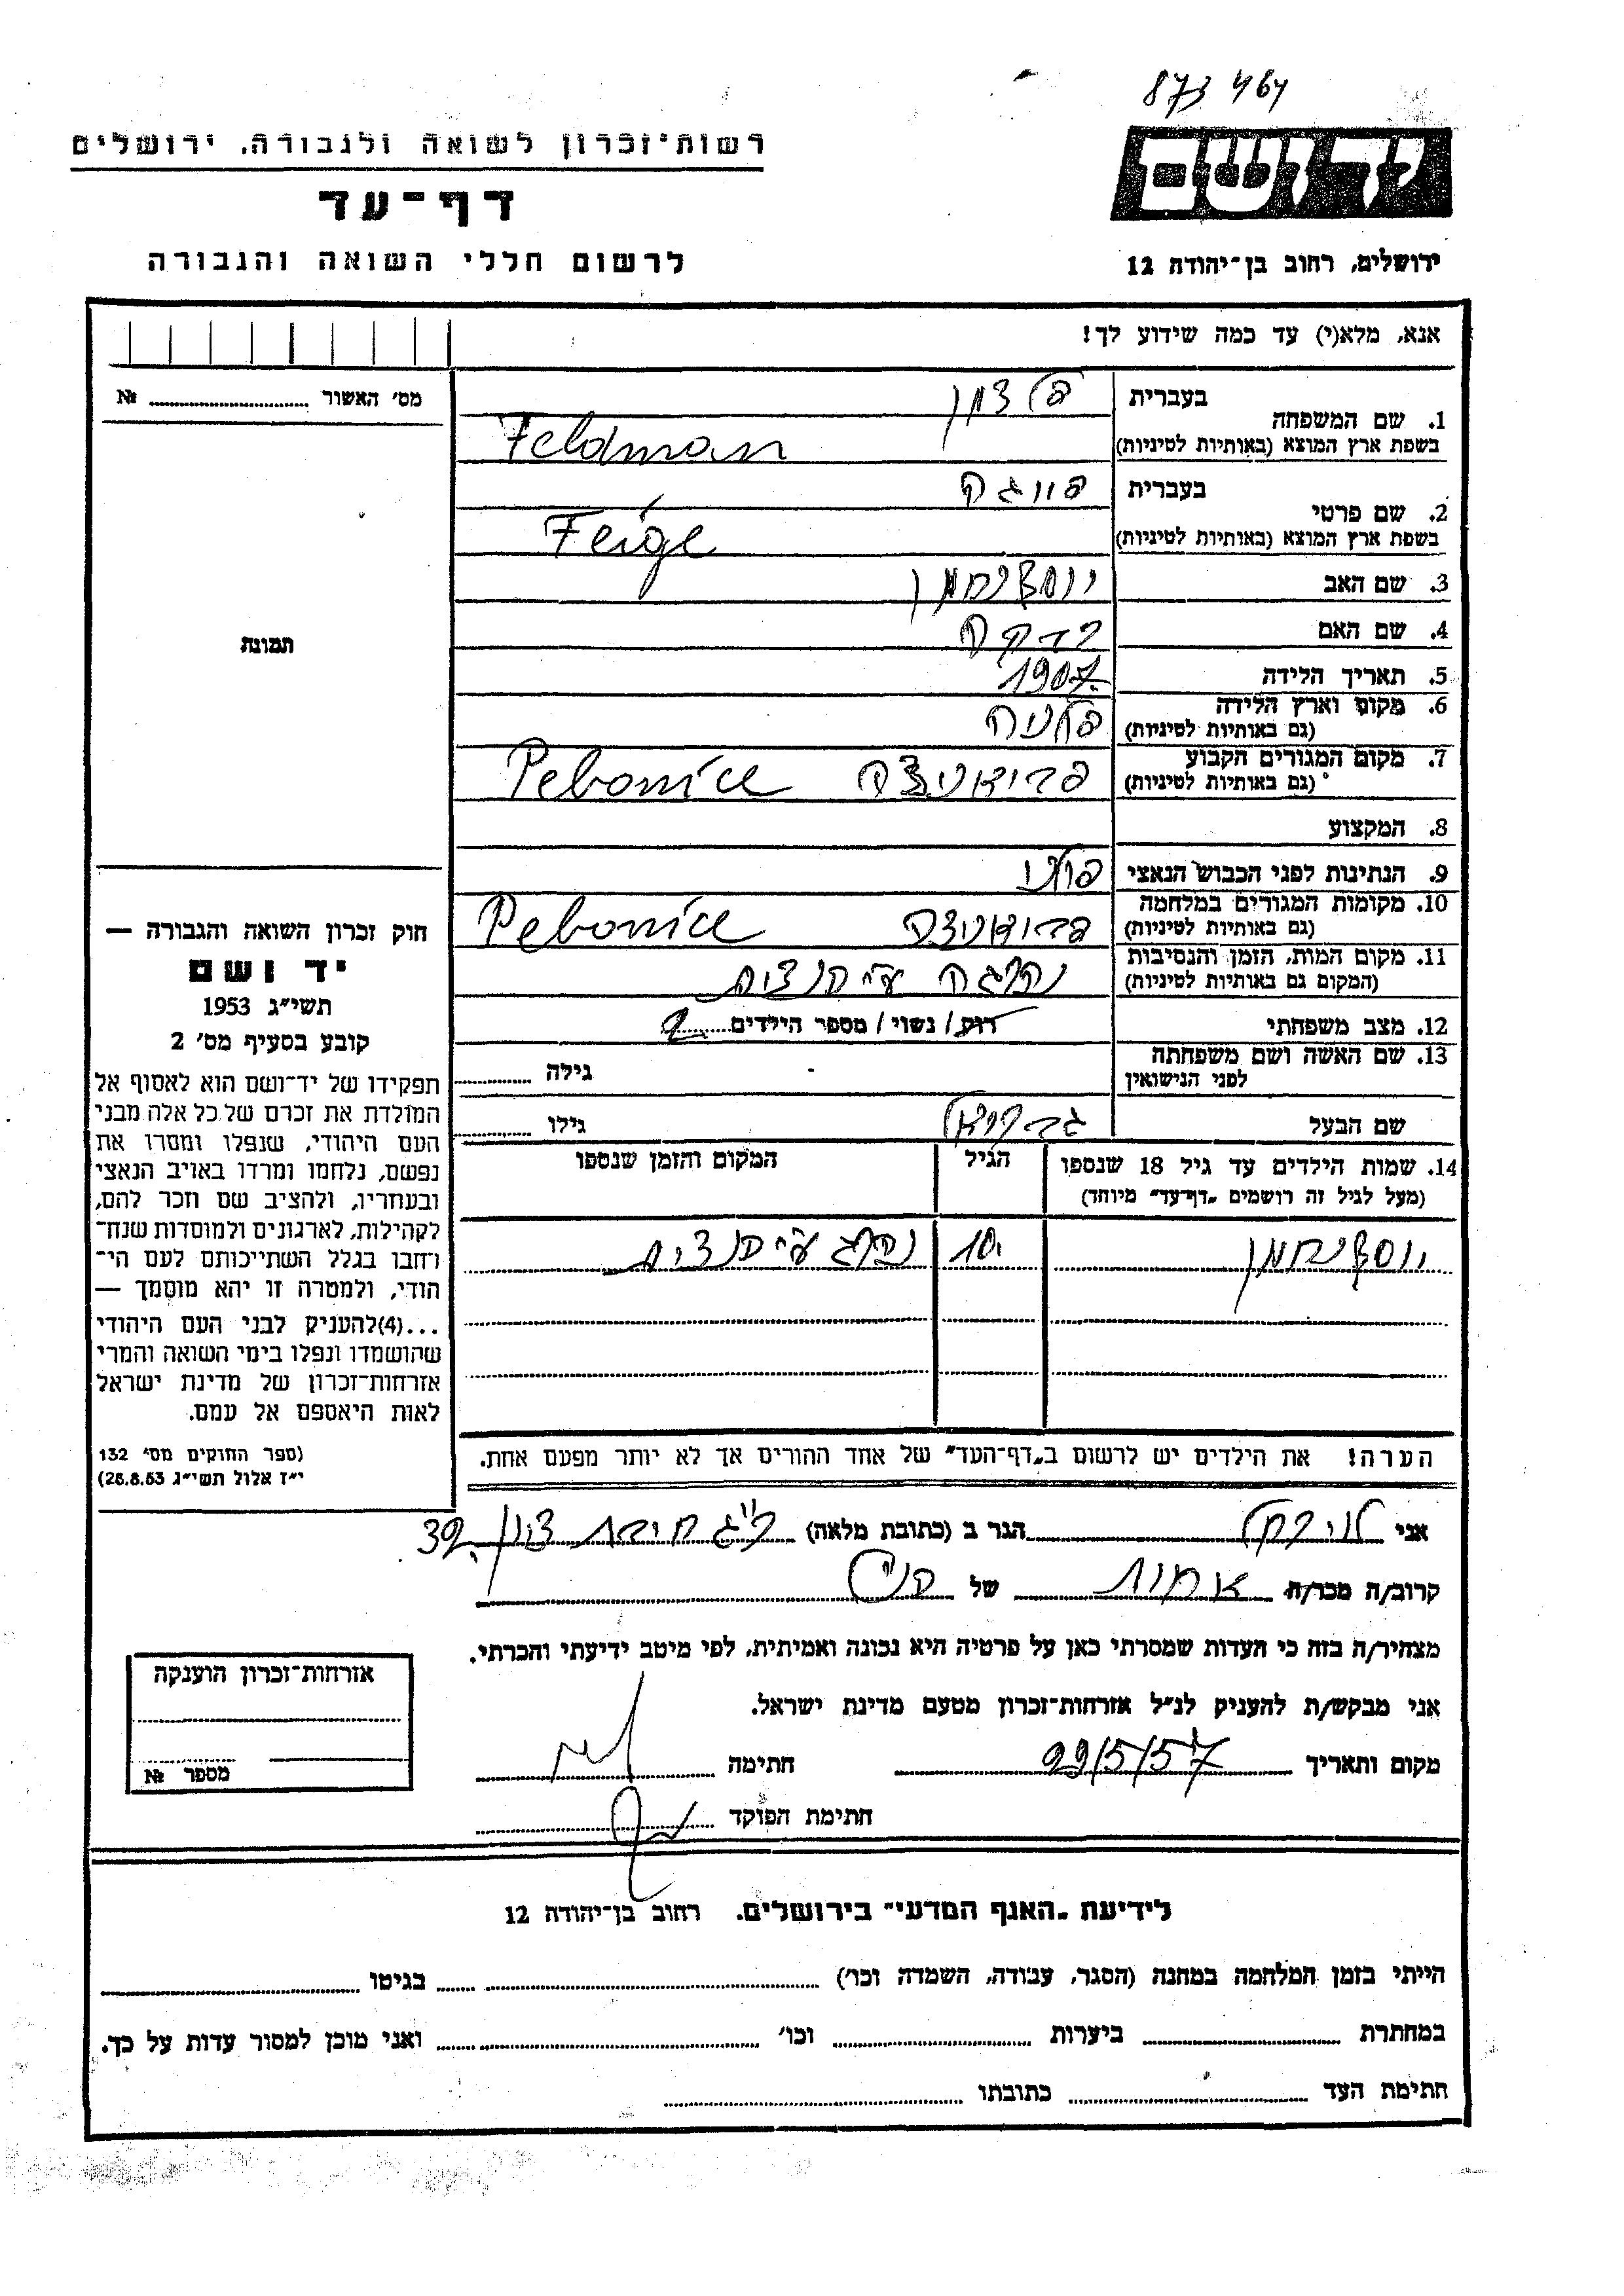 873 464
רשות־זכרון לשואה ולגבורה, ירושלים
יד ושם
דף-עד
לרשום חללי השואה והגבורה
ירושלים, רחוב בן־יהודה 12
אנא, מלא(י) עד כמה שידוע לך!
מס׳ האשור №
1. שם המשפחה
בעברית פלדמן
בשפת ארץ המוצא (באותיות לטיניות) Feldman
2. שם פרטי
בעברית פייגה
בשפת ארץ המוצא (באותיות לטיניות) Feige
3. שם האב
4. שם האם רבקה
5. תאריך הלידה 1907
6. מקום וארץ הלידה (גם באותיות לטיניות)
7. מקום המגורים הקבוע (גם באותיות לטיניות) Pebonice
8. המקצוע
9. הנתינות לפני הכבוש הנאצי
10. מקומות המגורים במלחמה (גם באותיות לטיניות) Pebonice
11. מקום המות, הזמן והנסיבות (המקום גם באותיות לטיניות) נהרגה ע״י הנצים
12. מצב משפחתי רוק/ נשוי/ מספר הילדים 2
13. שם האשה ושם משפחתה לפני הנישואין גילה
שם הבעל גבריאל גילו
14. שמות הילדים עד גיל 18 שנספו (מעל לגיל זה רושמים „דף־עד״ מיוחד)
הגיל
המקום והזמן שנספו
10 נהרג ע״י הנצים
הערה! את הילדים יש לרשום ב„דף־העד״ של אחד ההורים אך לא יותר מפעם אחת.
תמונה
חוק זכרון השואה והגבורה —
יד ושם
תשי״ג 1953
קובע בסעיף מס׳ 2
תפקידו של יד־ושם הוא לאסוף אל
המולדת את זכרם של כל אלה מבני
העם היהודי, שנפלו ומסרו את
נפשם, נלחמו ומרדו באויב הנאצי
ובעוזריו, ולהציב שם וזכר להם,
לקהילות, לארגונים ולמוסדות שנח־
רחבו בגלל השתייכותם לעם הי־
הודי, ולמטרה זו יהא מוסמך —
...(4)להעניק לבני העם היהודי
שהושמדו ונפלו בימי השואה והמרי
אזרחות־זכרון של מדינת ישראל
לאות היאספם אל עמם.
(ספר החוקים מס׳ 132
י״ז אלול תשי״ג 28.8.53)
אני הגר ב (כתובת מלאה) 39
קרוב/ה מכר/ה של הנ״ל
מצהיר/ה בזה כי העדות שמסרתי כאן על פרטיה היא נכונה ואמיתית, לפי מיטב ידיעתי והכרתי.
אני מבקש/ת להעניק לנ״ל אזרחות־זכרון מטעם מדינת ישראל.
מקום ותאריך 29/5/57 חתימה
חתימת הפוקד
אזרחות־זכרון הוענקה
מספר №
לידיעת „האגף המדעי״ בירושלים. רחוב בן־יהודה 12
הייתי בזמן המלחמה במחנה (הסגר, עבודה, השמדה וכו׳) בגיטו
במחתרת ביערות וכו׳ ואני מוכן למסור עדות על כך.
חתימת העד כתובתו